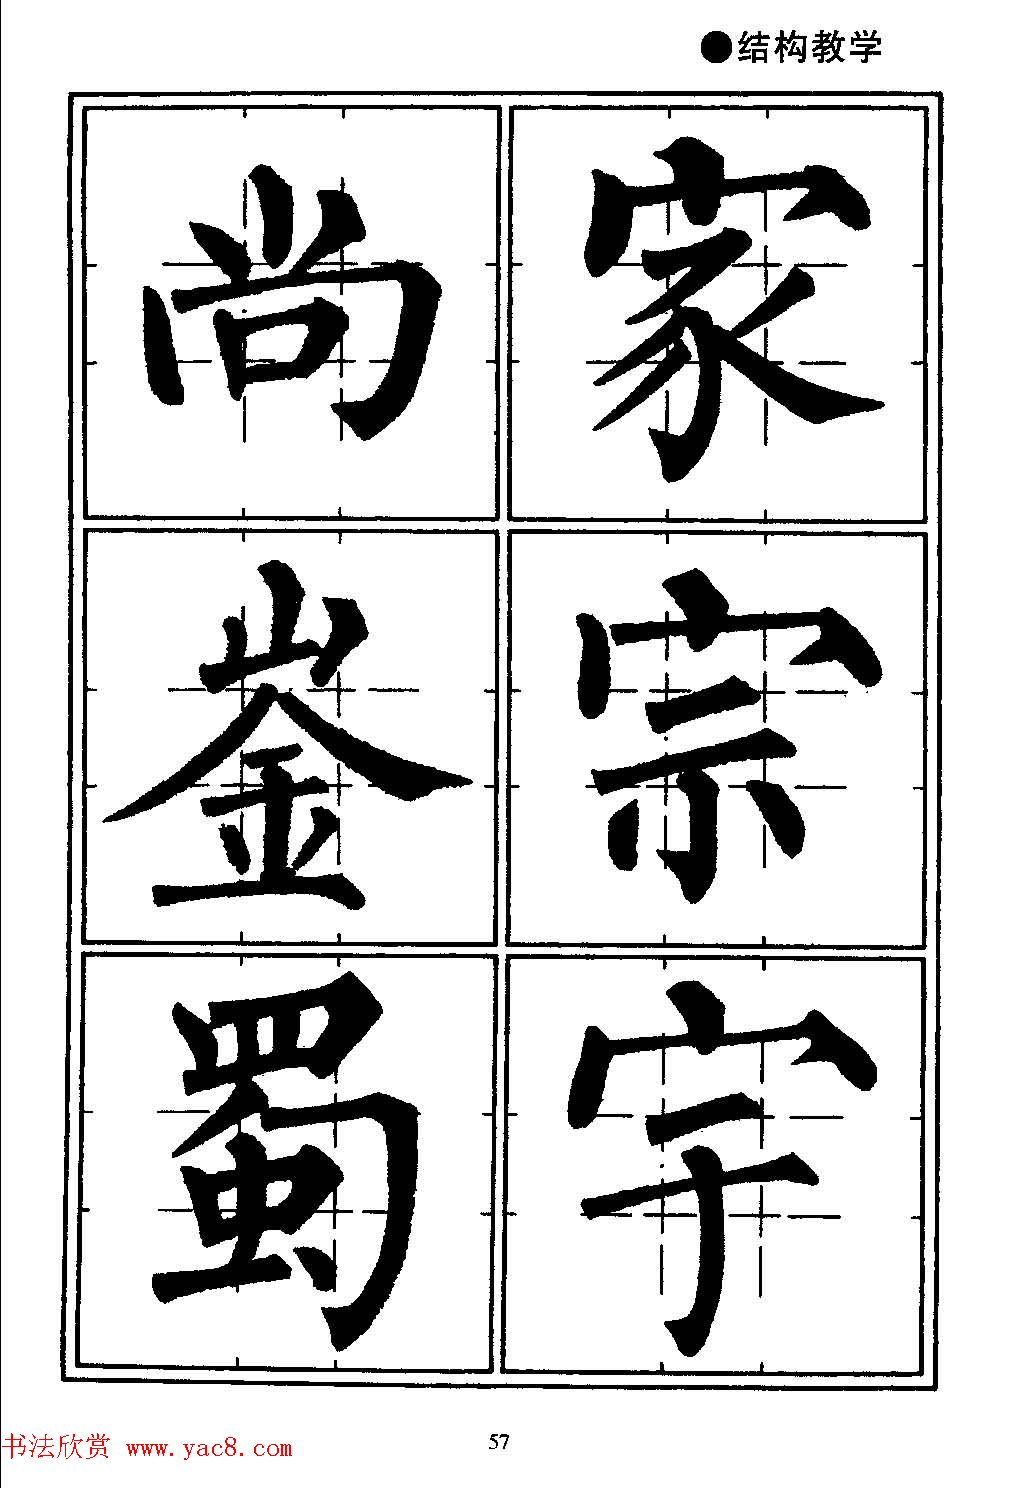 ●结构教学
家宗宇
尚崟蜀
57
书法欣赏 www.yac8.com